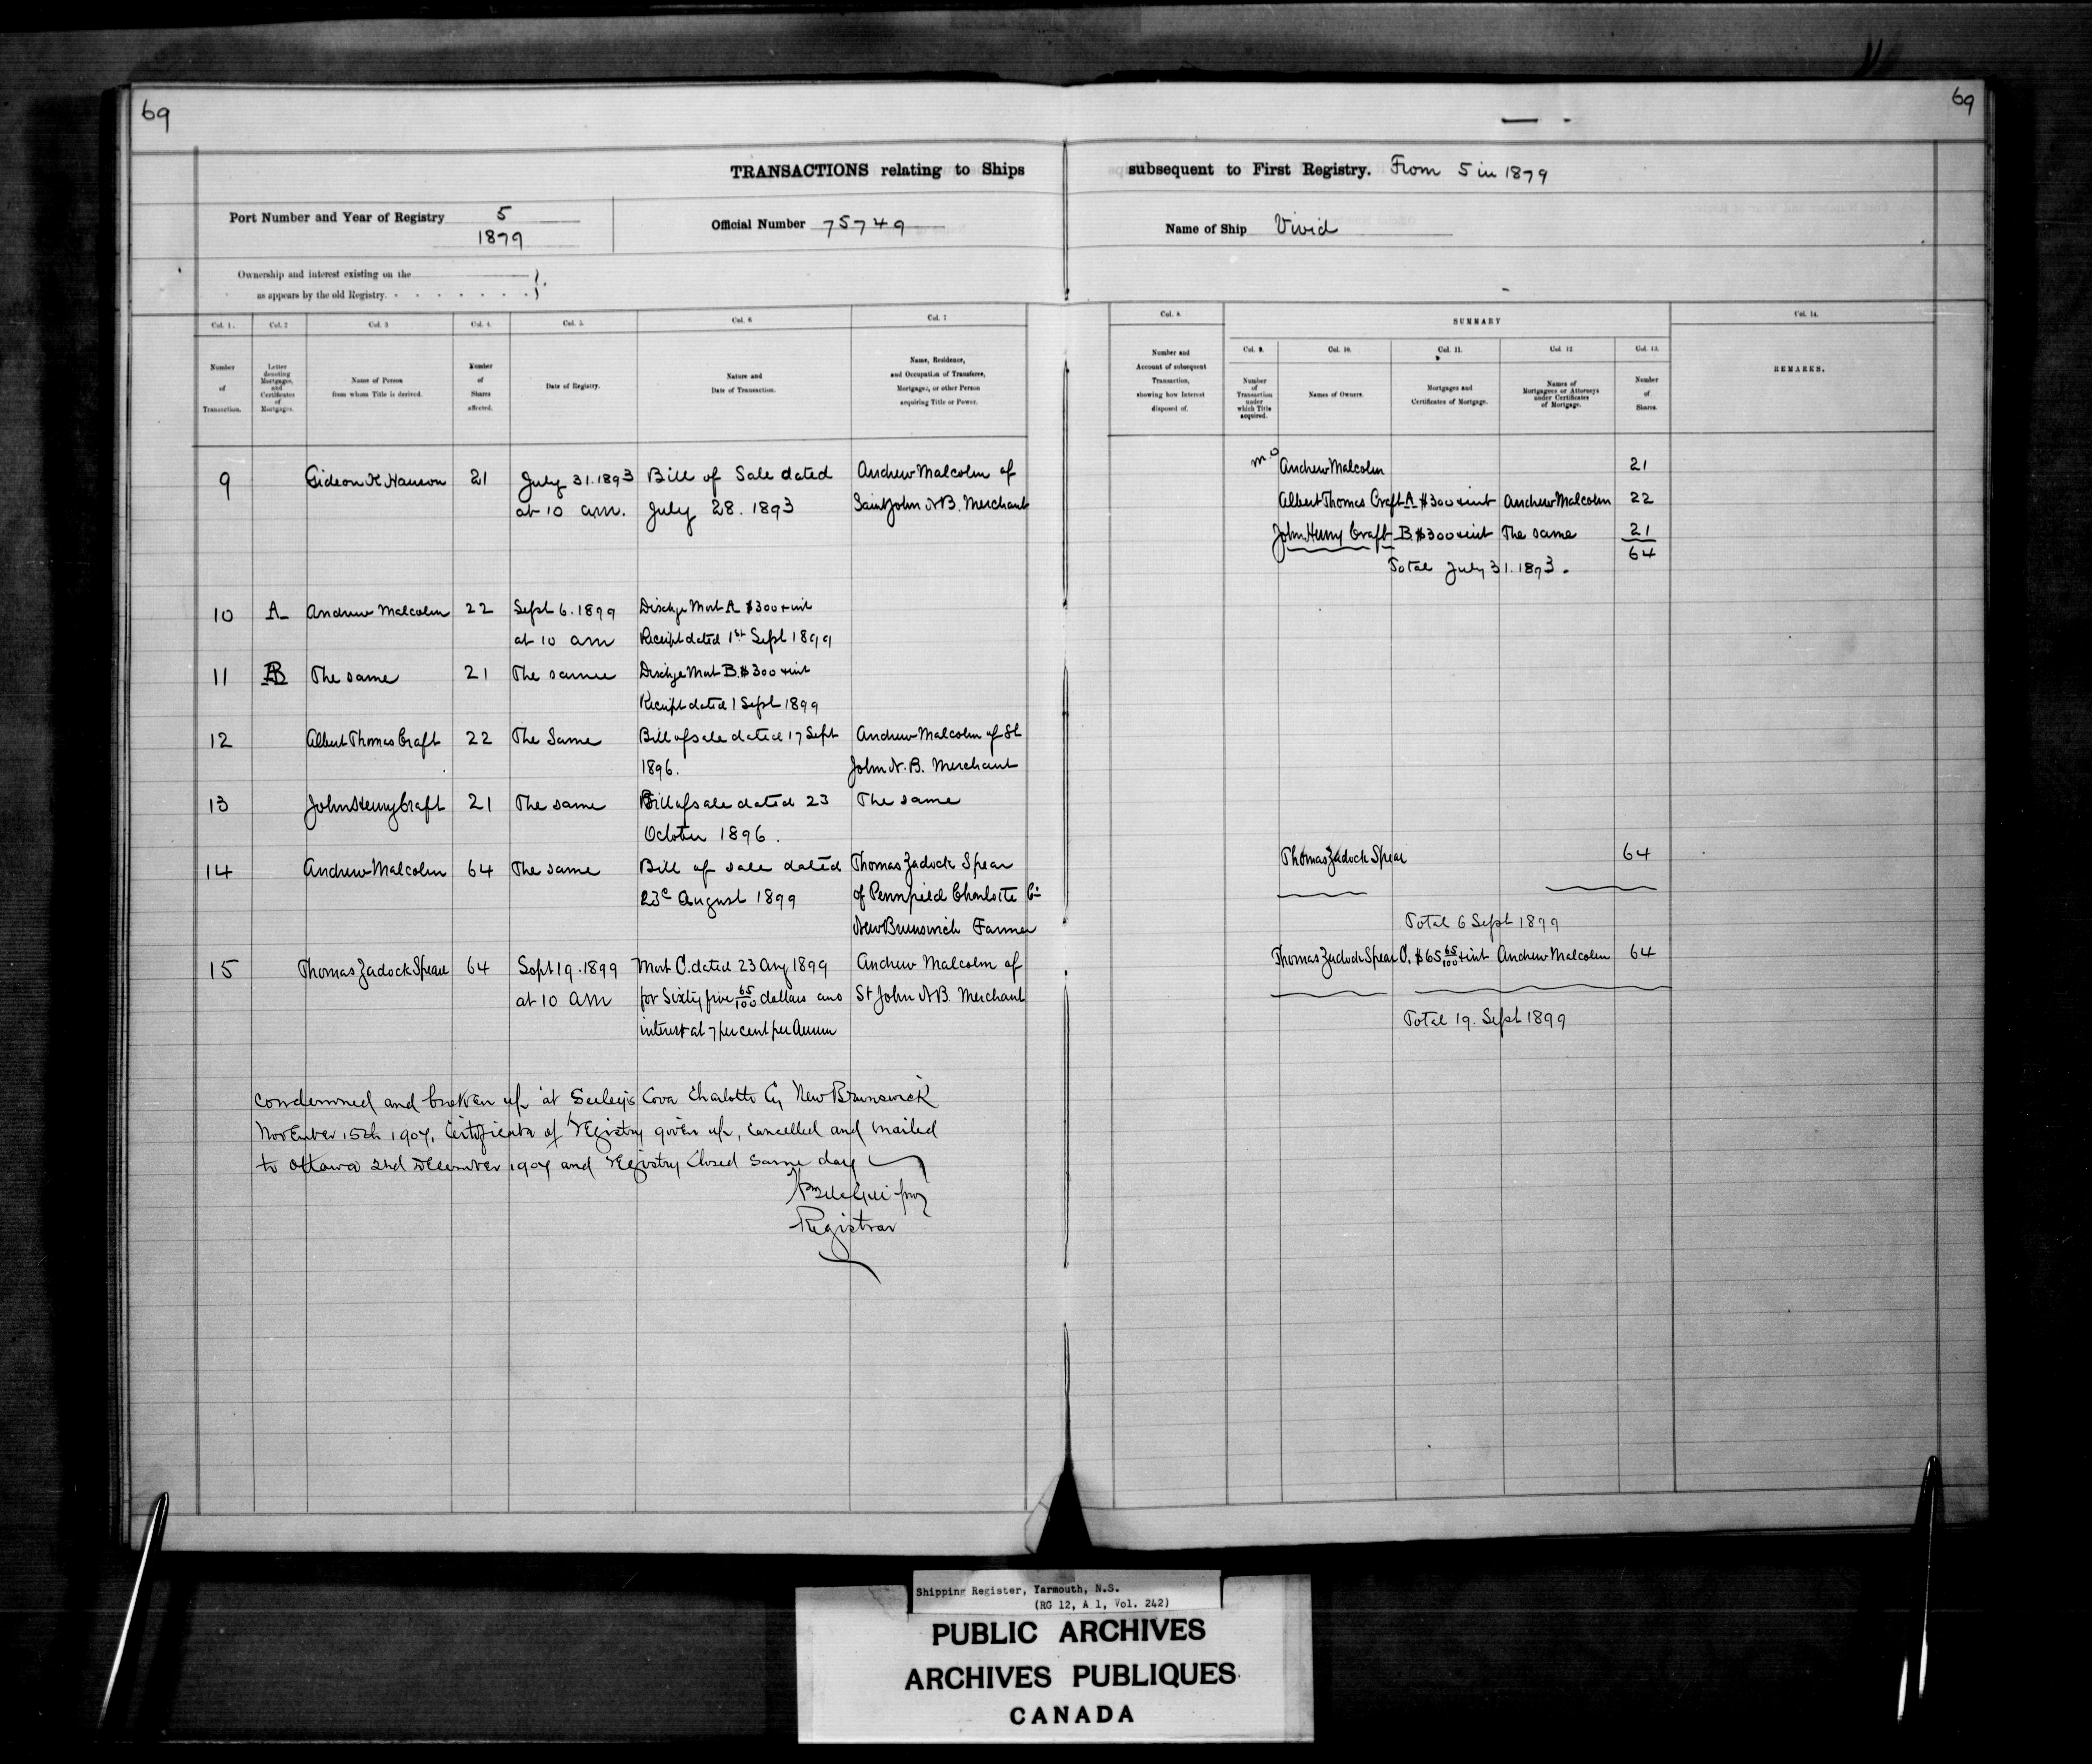 69
69
TRANSACTIONS relating to Ships subsequent to First Registry. From 5 in 1879
Port Number and Year of Registry 5
1879
Official Number 75749
Name of Ship Vivid
Ownership and interest existing on the
as appears by the old Registry.
Col. 1. Col. 2 Col. 3 Col. 4. Col. 5. Col. 6 Col. 7
Number of Transaction.
Letter denoting Mortgages, and Certificates of Mortgages.
Name of Person from whom Title is derived.
Number of Shares affected.
Date of Registry.
Nature and Date of Transaction.
Name, Residence, and Occupation of Transferee, Mortgagee, or other Person acquiring Title or Power.
Col. 8. SUMMARY Col. 14.
Col. 9. Col. 10. Col. 11. Col. 12 Col. 13.
Number and Account of subsequent Transaction, showing how Interest disposed of.
Number of Transaction under which Title acquired.
Names of Owners.
Mortgages and Certificates of Mortgage.
Names of Mortgagees or Attorneys under Certificates of Mortgage.
Number of Shares.
REMARKS.
9 Gideon K Hanson 21 July 31. 1893 Bill of Sale dated Andrew Malcolm of
at 10 am. July 28. 1893 Saint John N B. Merchant
10 A Andrew Malcolm 22 Sept 6. 1899 Dischge Mort A $300 & int
at 10 am Receipt dated 1st Sept 1899
11 B The same 21 The same Dischge Mort B. $300 & int
Receipt dated 1 Sept 1899
12 Albert Thomas Craft 22 The Same Bill of sale dated 17 Sept Andrew Malcolm of St
1896. John N. B. Merchant
13 John Henry Craft 21 The same Bill of sale dated 23 The same
October 1896.
14 Andrew Malcolm 64 The same Bill of sale dated Thomas Zadock Spear
23d August 1899 of Pennfield Charlotte Co
New Brunswick Farmer
15 Thomas Zadock Spear 64 Sept 19. 1899 Mort C. dated 23 Aug 1899 Andrew Malcolm of
at 10 am for Sixty five 65/100 dollars and St John N B. Merchant
interest at 7 per cent per Annum
Andrew Malcolm 21
Albert Thomas Craft A $300 & int Andrew Malcolm 22
John Henry Craft B. $300 & int The same 21
64
Total July 31. 1893.
Thomas Zadock Spear 64
Total 6 Sept 1899
Thomas Zadock Spear C. $65 65/100 & int Andrew Malcolm 64
Total 19. Sept 1899
Condemned and broken up at Seeleys Cove Charlotte Cy New Brunswick
November 15th 1907, Certificate of registry given up, Cancelled and mailed
to Ottawa 2nd December 1907 and registry Closed same day
Registrar
Shipping Register, Yarmouth, N.S.
(RG 12, A 1, Vol. 242)
PUBLIC ARCHIVES
ARCHIVES PUBLIQUES
CANADA